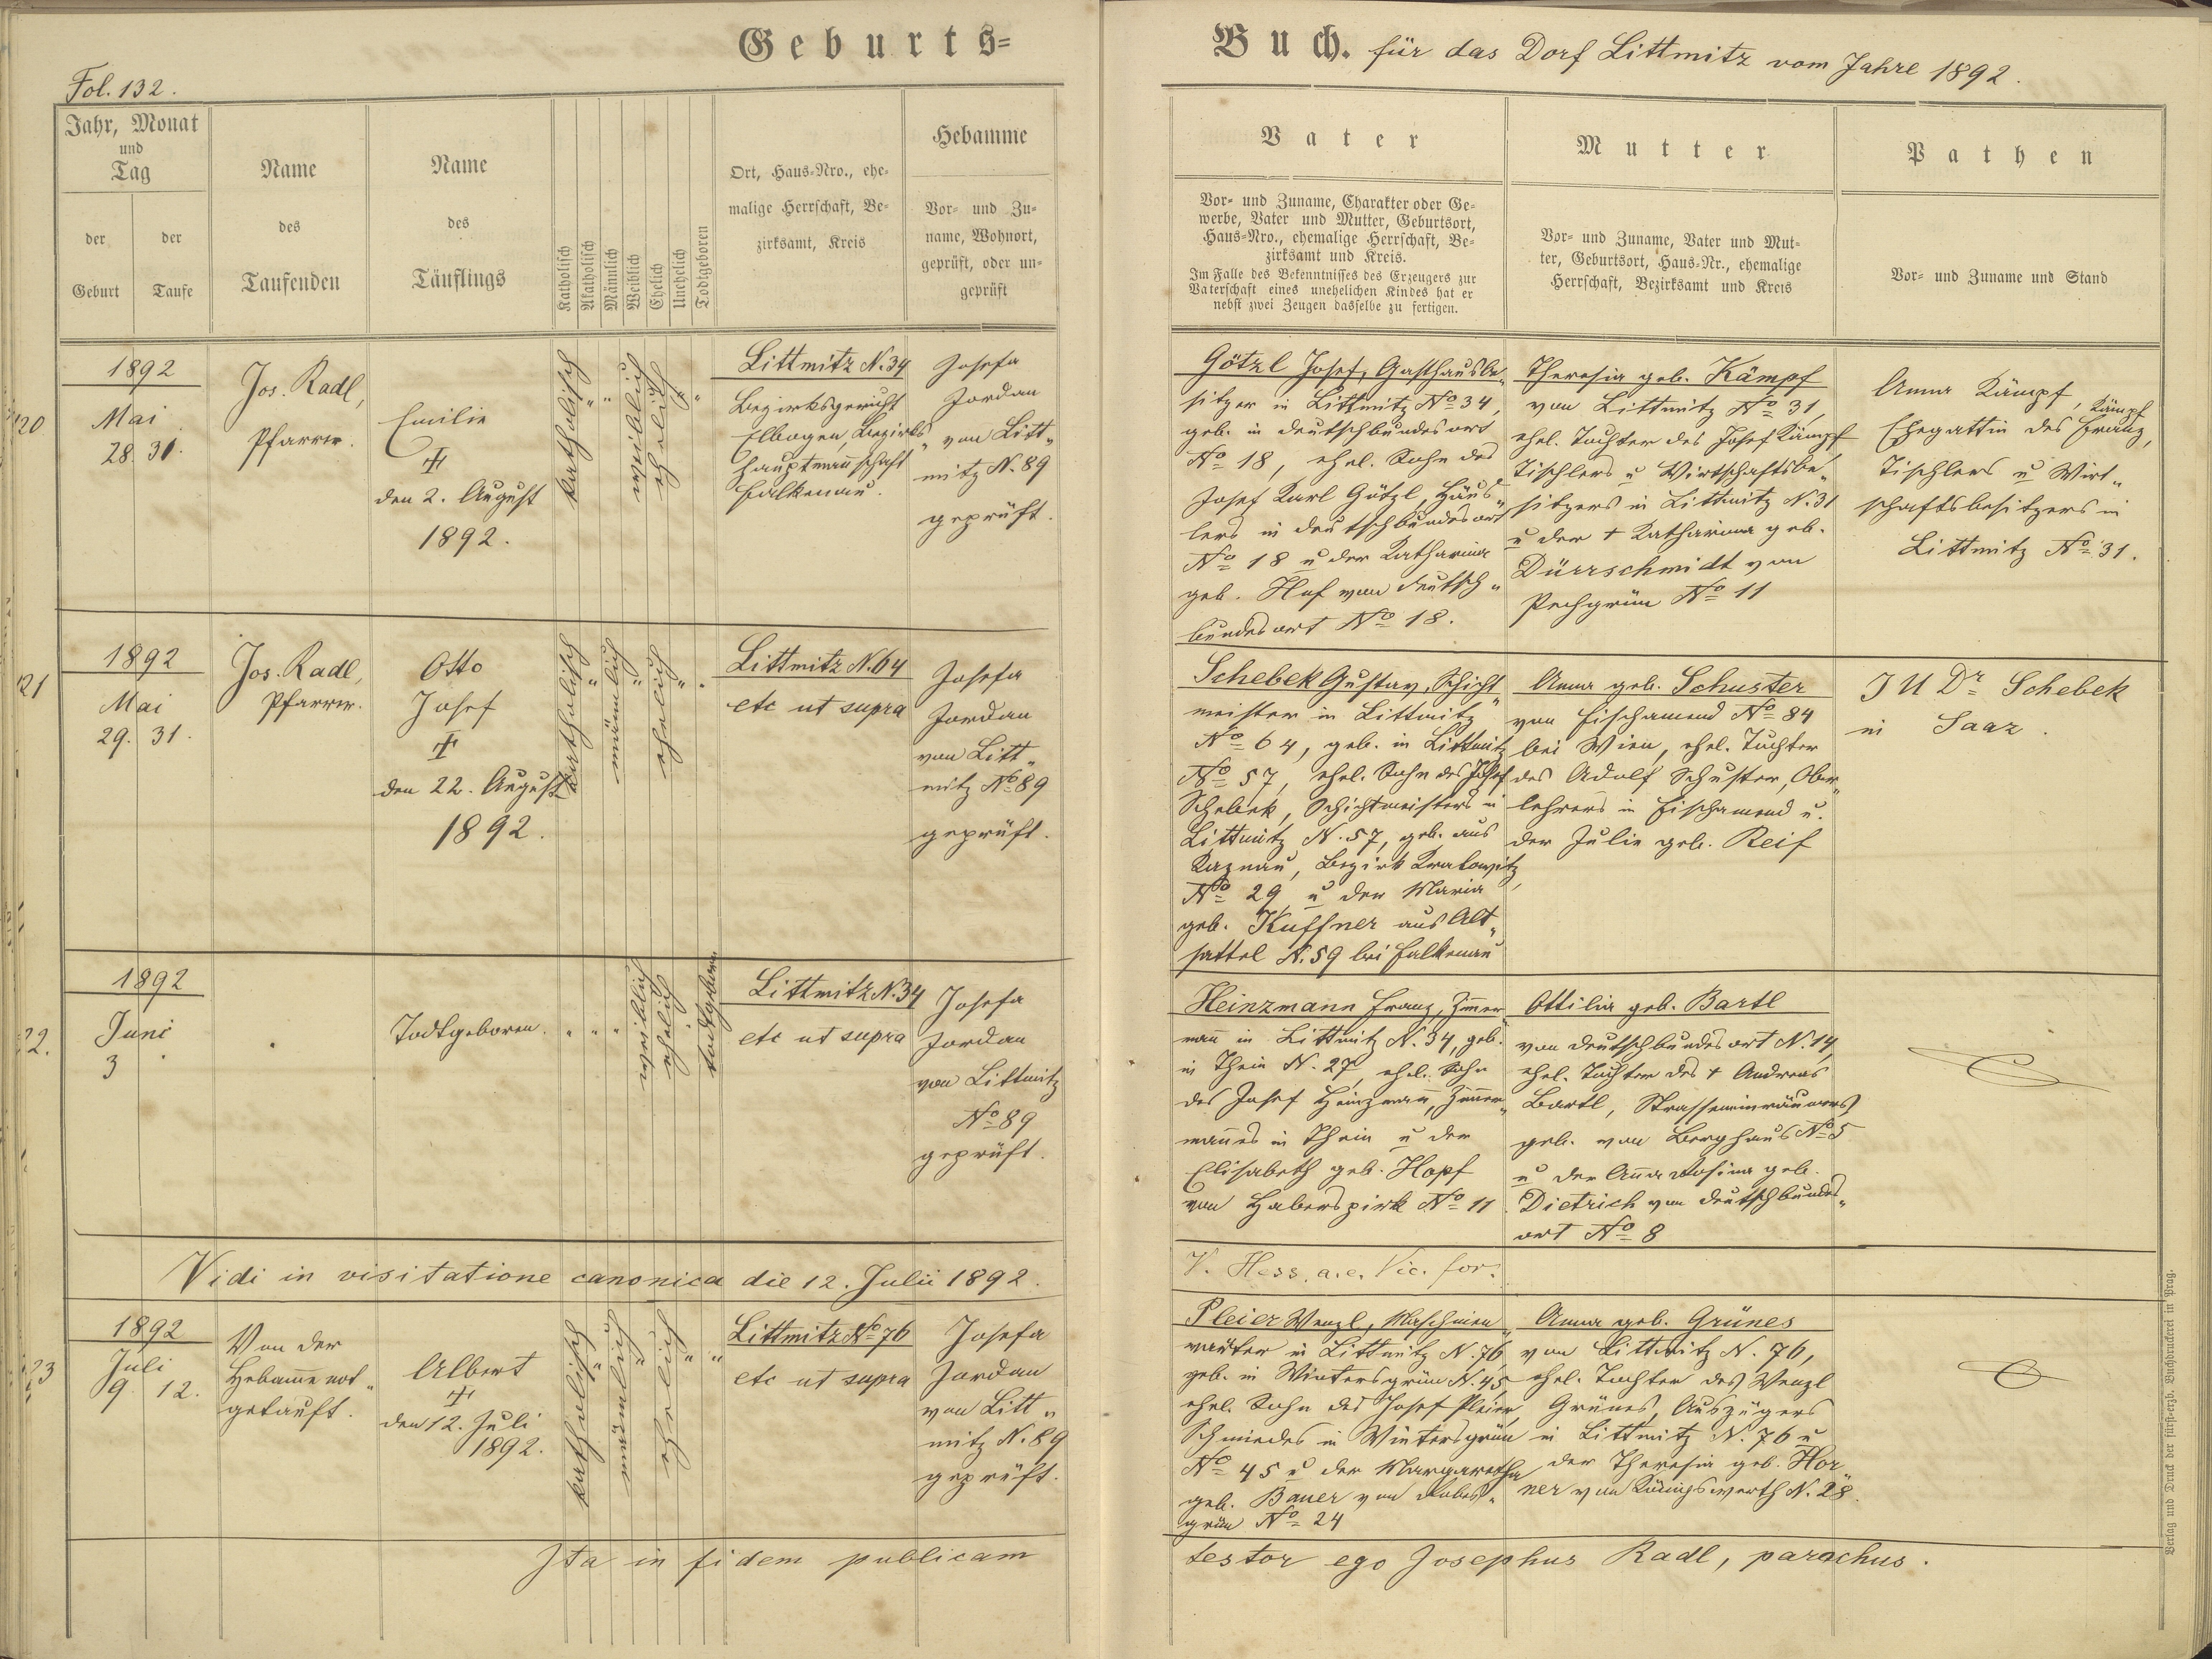 Geburts=
Buch. für das Dorf Littmitz vom Jahre 1892.
Fol. 132.
Jahr, Monat
und
Tag
der
Geburt
der
Taufe
Name
des
Taufenden
Name
des
Täuflings
Katholisch
Akatholisch
Männlich
Weiblich
Ehelich
Unehelich
Todtgeboren
Ort, Haus-Nro., ehe-
malige Herrschaft, Be-
zirksamt, Kreis
Hebamme
Vor- und Zu-
name, Wohnort,
geprüft, oder un-
geprüft
Vater
Vor- und Zuname, Charakter oder Ge-
werbe, Vater und Mutter, Geburtsort,
Haus-Nro., ehemalige Herrschaft, Be-
zirksamt und Kreis.
Im Falle des Bekenntnisses des Erzeugers zur
Vaterschaft eines unehelichen Kindes hat er
nebst zwei Zeugen dasselbe zu fertigen.
Mutter
Vor- und Zuname, Vater und Mut-
ter, Geburtsort, Haus-Nr., ehemalige
Herrschaft, Bezirksamt und Kreis
Pathen
Vor- und Zuname und Stand
20
1892
Mai
28. 31.
Jos. Radl,
Pfarrer.
Emilie
†
den 2. August
1892.
katholisch
"
"
weiblich
ehelich
"
Littmitz N. 34
Bezirksgericht
Elbogen, Bezirks„
hauptmannschaft
Falkenau.
Josefa
Jordan
von Litt„
mitz N. 89
geprüft.
Götzl Josef, Gasthausbe„
sitzer in Littmitz No 34,
geb. in Deutschbundesort
No 18, ehel. Sohn des
Josef Karl Götzl, Häus„
lers in Deutschbundesort
No 18 u der Katharina
geb. Huf von Deutsch„
bundesort No 18.
Theresia geb. Kämpf
von Littmitz No 31,
ehel. Tochter des Josef Kämpf
Tischlers u Wirtschaftsbe„
sitzers in Littmitz N. 31
u der † Katharina geb.
Dürrschmidt von
Pechgrün No 11
Anna Kämpf,
Ehegattin des Franz Kämpf,
Tischlers u Wirt„
schaftsbesitzers in
Littmitz No 31.
21
1892
Mai
29. 31.
Jos. Radl,
Pfarrer.
Otto
Josef
†
den 22. August
1892.
katholisch
"
männlich
"
ehelich
"
Littmitz N. 64
etc ut supra
Josefa
Jordan
von Litt„
mitz No 89
geprüft.
Schebek Gustav, Schicht„
meister in Littmitz
No 64, geb. in Littmitz
No 57, ehel. Sohn des Josef
Schebek, Schichtmeisters in
Littmitz N. 57, geb. aus
Kaznau, Bezirk Kralowitz
No 29, u der Maria
geb. Kuffner aus Alt„
sattel N. 59 bei Falkenau
Anna geb. Schuster
von Fischamend No 84
bei Wien, ehel. Tochter
des Adolf Schuster, Ober„
lehrers in Fischamend u.
der Julie geb. Reif
JUDr Schebek
in Saaz.
22.
1892
Juni
3
Todtgeboren.
"
"
"
weiblich
ehelich
todtgeboren
Littmitz N. 34
etc ut supra
Josefa
Jordan
von Littmitz
No 89
geprüft.
Heinzmann Franz, Zimmer„
mann in Littmitz N. 34, geb.
in Thein N. 27, ehel. Sohn
des Josef Heinzmann, Zimmer„
mannes in Thein u der
Elisabeth geb. Hopf
von Haberspirk No 11
Ottilia geb. Bartl
von Deutschbundesort N. 14,
ehel. Tochter des † Andreas
Bartl, Strasseneinräumers,
geb. von Berghaus No 5
u der Anna Rosina geb.
Dietrich von Deutschbundes„
ort No 8
Vidi in visitatione canonica die 12. Julii 1892.
V. Hess, a.e. Vic. for.
23
1892
Juli
9. 12.
Von der
Hebamme not„
getauft.
Albert
†
den 12. Juli
1892.
katholisch
"
männlich
"
ehelich
"
"
Littmitz No 76
etc ut supra
Josefa
Jordan
von Litt„
mitz N. 89
geprüft.
Pleier Wenzl, Maschinen„
wärter in Littmitz N. 76,
geb. in Wintersgrün N. 45,
ehel. Sohn des Josef Pleier,
Schmiedes in Wintersgrün
No 45 u der Margaretha
geb. Bauer von Robes„
grün No 24
Anna geb. Grünes
von Littmitz N. 76,
ehel. Tochter des Wenzl
Grünes, Auszügers
in Littmitz N. 76 u
der Theresia geb. Hor„
ner von Königswerth N. 28.
Ita in fidem publicam
testor ego Josephus Radl, parochus.
Verlag und Druck der fürst-erzb. Buchdruckerei in Prag.